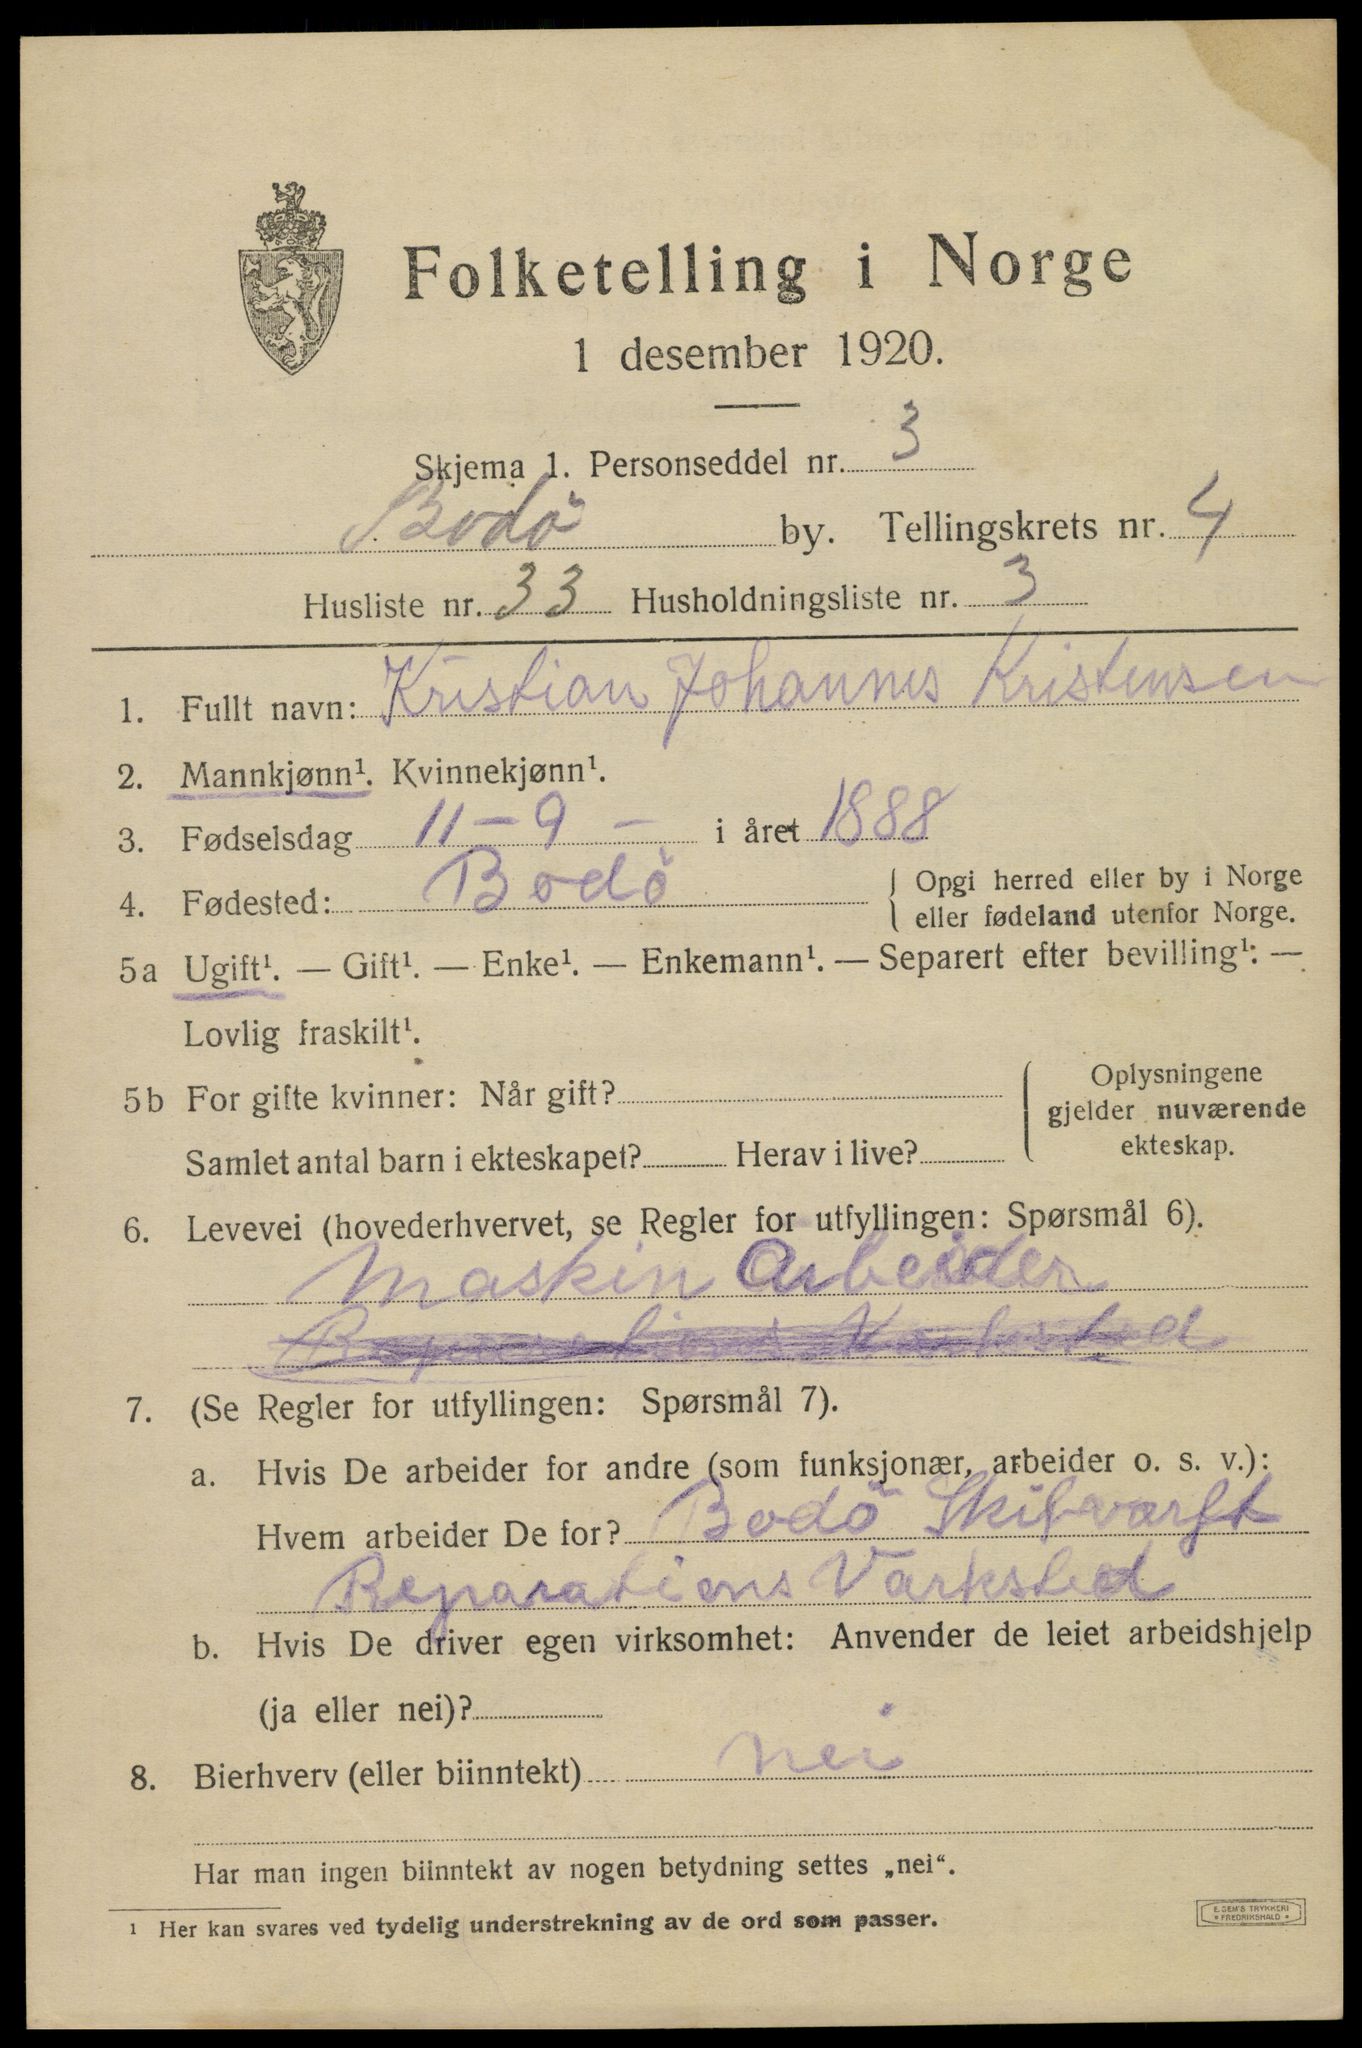 Folketelling i Norge
1 desember 1920.
Skjema 1. Personseddel nr. 3
Bodö by. Tellingskrets nr. 4
Husliste nr. 33 Husholdningsliste nr. 3
1. Fullt navn: Kristian Johannes Kristensen
2. Mannkjønn¹. Kvinnekjønn¹.
3. Fødselsdag 11 - 9 - i året 1888
4. Fødested: Bodö { Opgi herred eller by i Norge
eller fødeland utenfor Norge.
5a Ugift¹. — Gift¹. — Enke¹. — Enkemann¹. — Separert efter bevilling¹: —
Lovlig fraskilt¹.
5b For gifte kvinner: Når gift? { Oplysningene
gjelder nuværende
ekteskap.
Samlet antal barn i ekteskapet? Herav i live?
6. Levevei (hovederhvervet, se Regler for utfyllingen: Spørsmål 6).
Maskin Arbeider
Reparations Varksted
7. (Se Regler for utfyllingen: Spørsmål 7).
a. Hvis De arbeider for andre (som funksjonær, arbeider o. s. v.):
Hvem arbeider De for? Bodö
Reparations Varksted
b. Hvis De driver egen virksomhet: Anvender de leiet arbeidshjelp
(ja eller nei)?
8. Bierhverv (eller biinntekt) nei
Har man ingen biinntekt av nogen betydning settes „nei“.
¹ Her kan svares ved tydelig understrekning av de ord som passer.
E. SEM'S TRYKKERI
• FREDRIKSHALD •